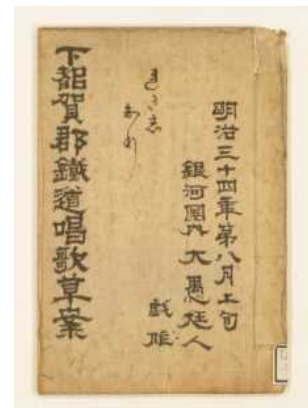 明治三十四年第八月上旬
銀河圏内大愚狂人
戯作
下都賀郡鐵道唱歌草案